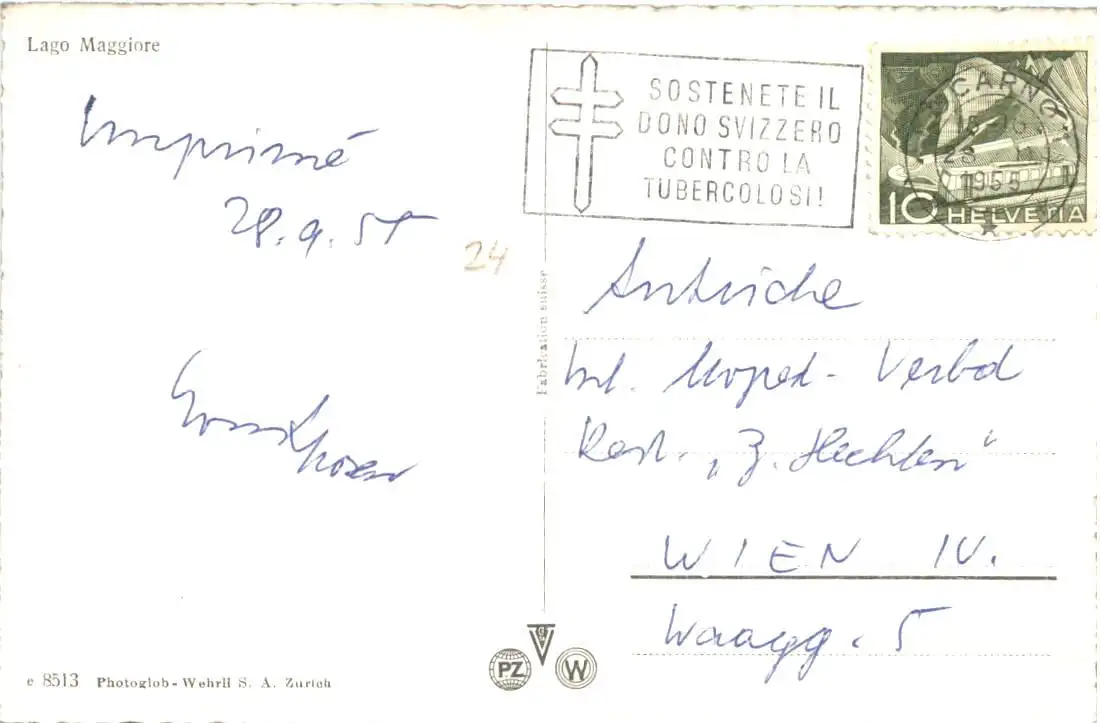 Lago Maggiore
Imprimé
28.9.55
24
SOSTENETE IL
DONO SVIZZERO
CONTRO LA
TUBERCOLOSI!
CARNO
1955
10 HELVETIA
Fabrication suisse
Moped - Verbd
Rest. "Z. Hechten"
WIEN IV.
Waagg. 5
PZ
W
e 8513 Photoglob-Wehrli S. A. Zürich